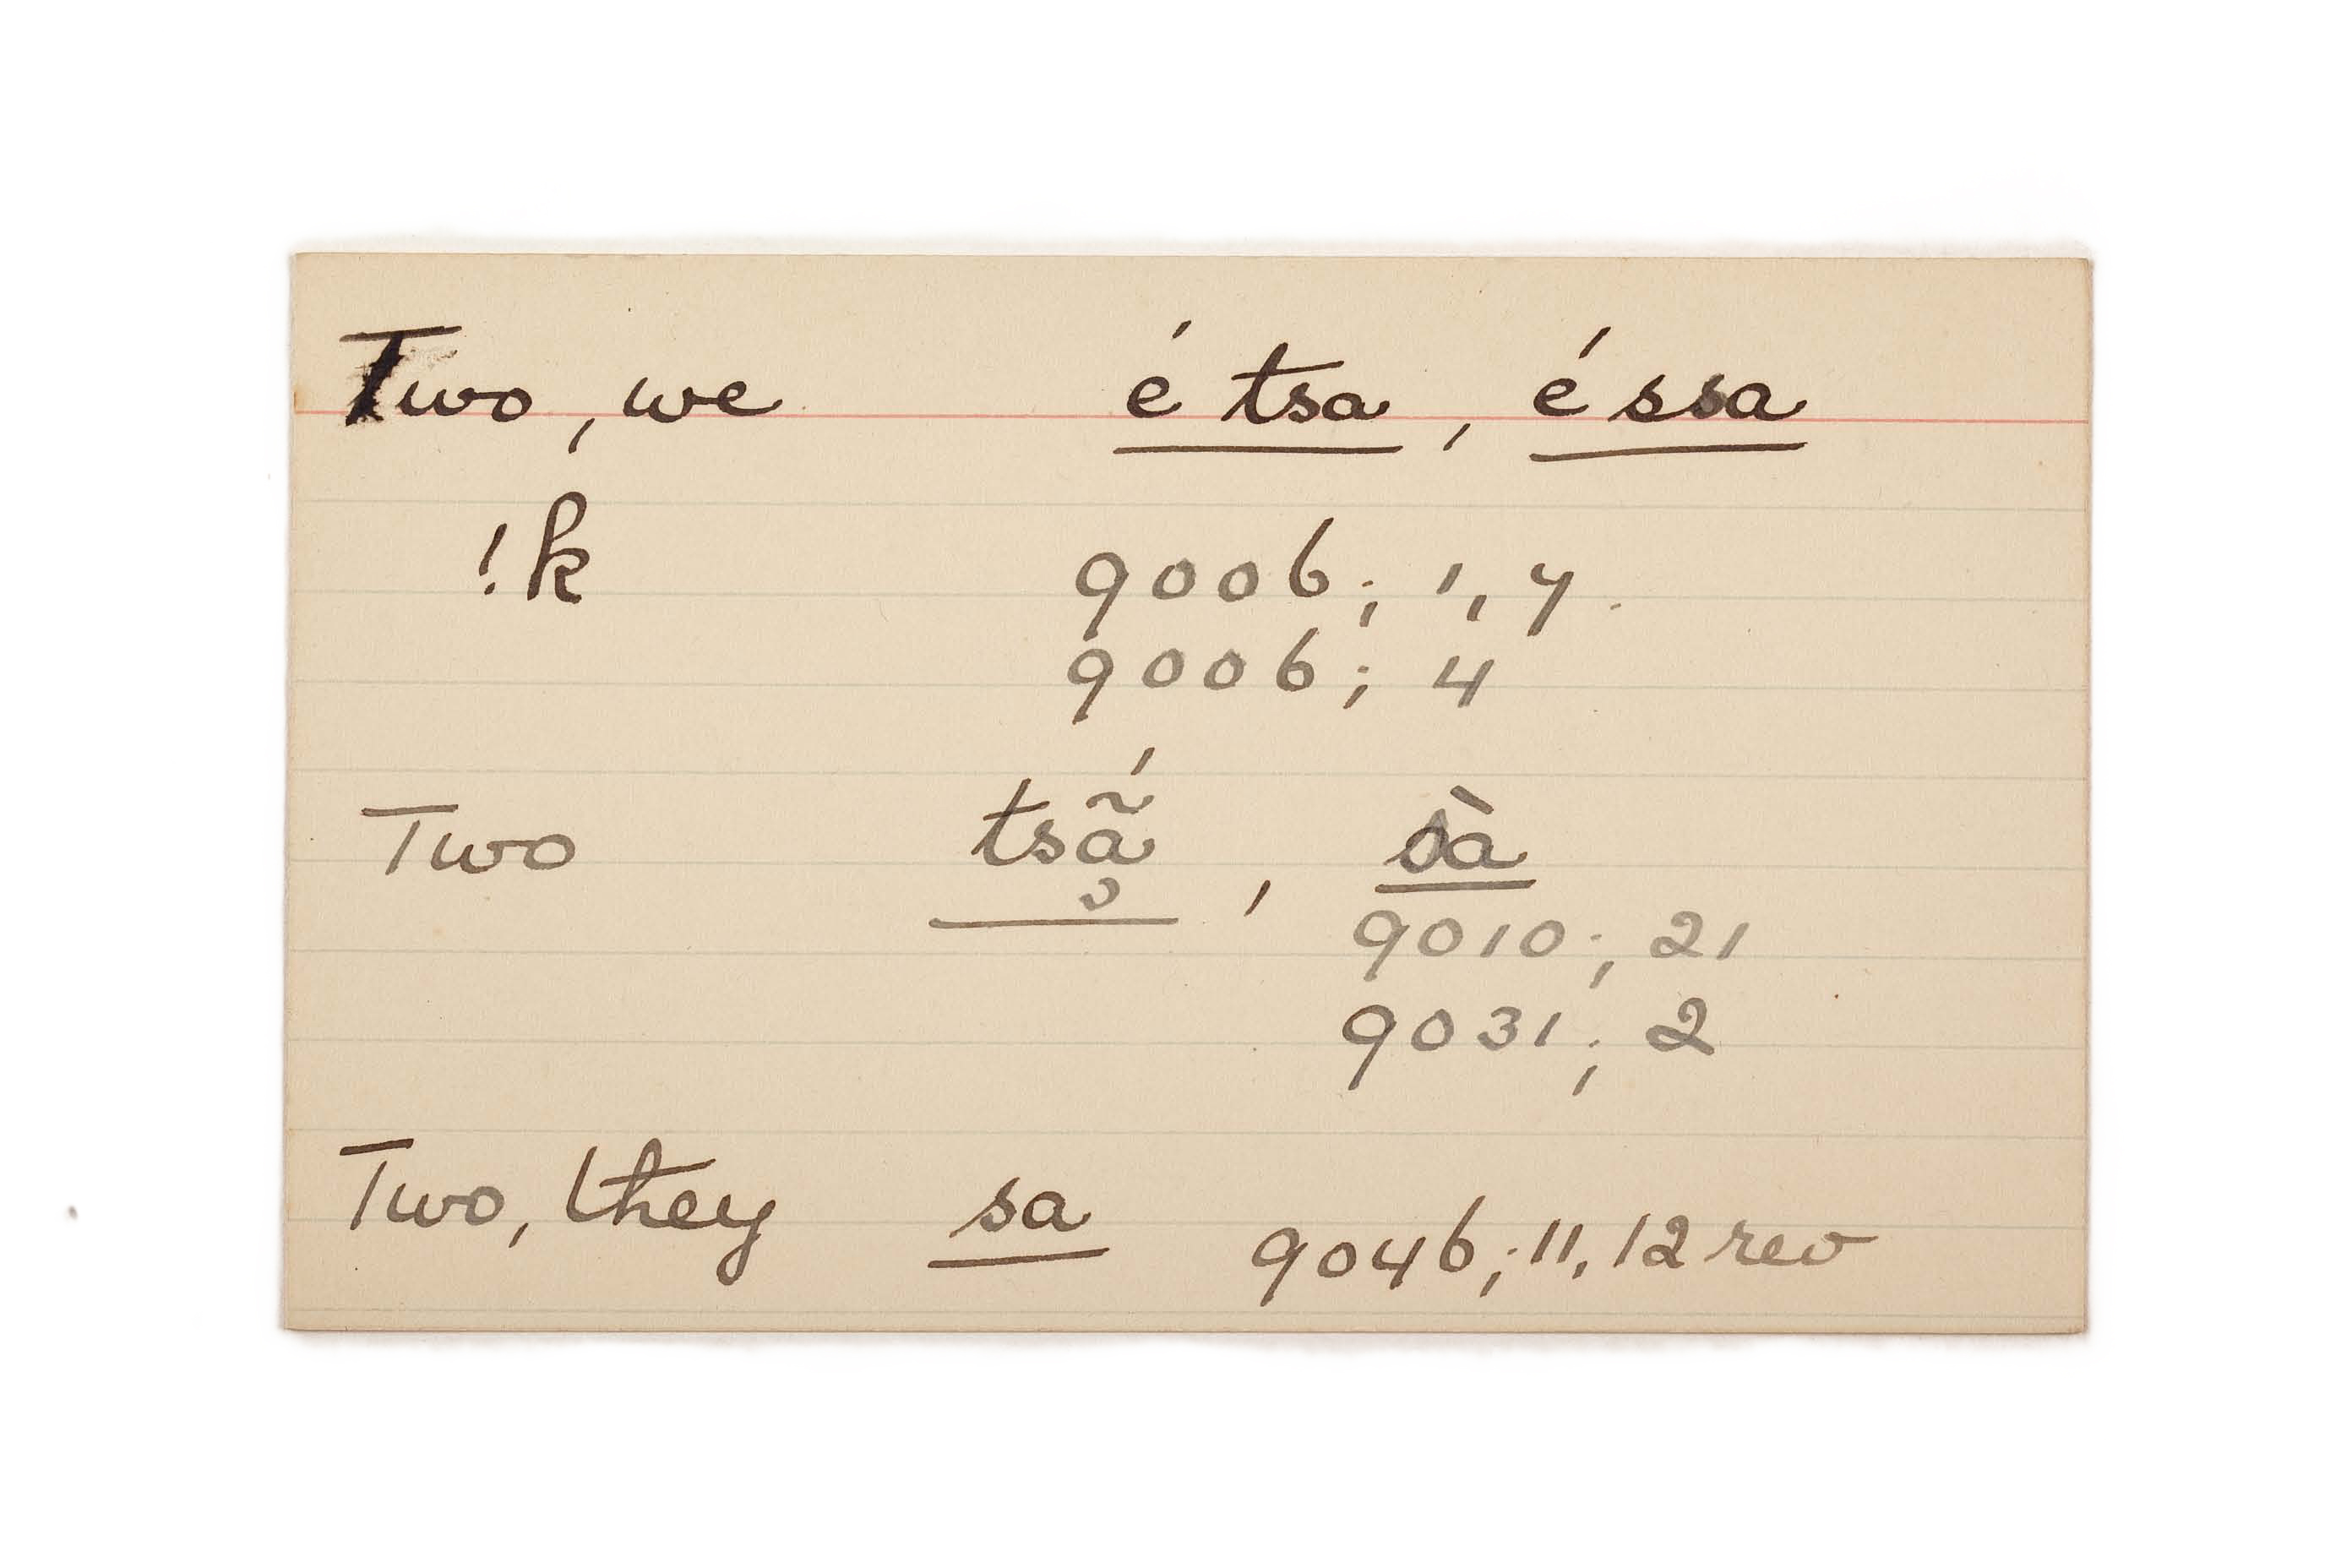 Two, we é tsa, é ssa
!k 9006; 1, 7.
9006; 4
Two tsã̰́, sà
9010; 21
9031; 2
Two, they sa 9046; 11, 12 rev